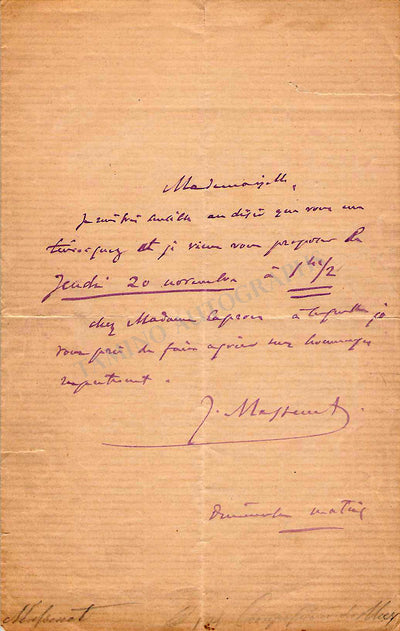 Mademoiselle,
Je suis très sensible au désir que vous me
témoignez et je viens vous proposer le
Jeudi 20 novembre à 1h/2
chez Madame à laquelle je
vous prie de faire agréer mes hommages
respectueux.
J. Massenet
dimanche matin
Massenet